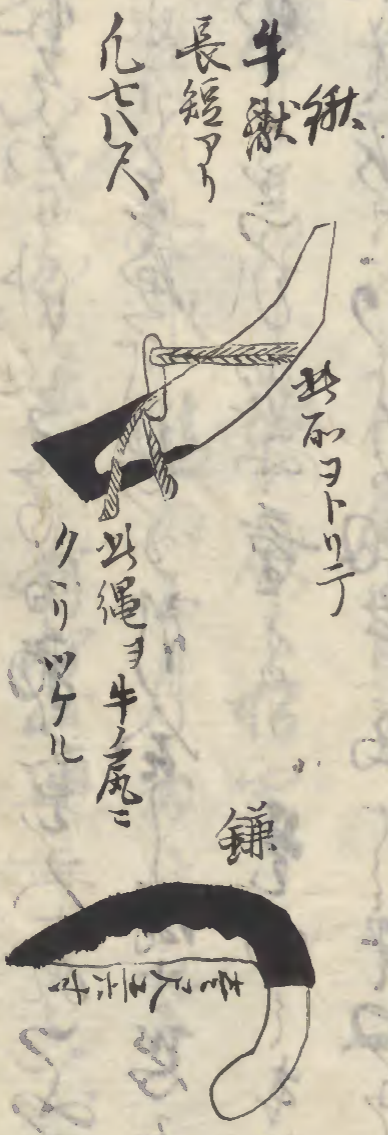 鍬
牛鍬
長短アリ
凡七八尺
此所ヲトリテ
此縄ヲ牛ノ尻ニ
クヽリツケル
鎌
壱尺五六寸